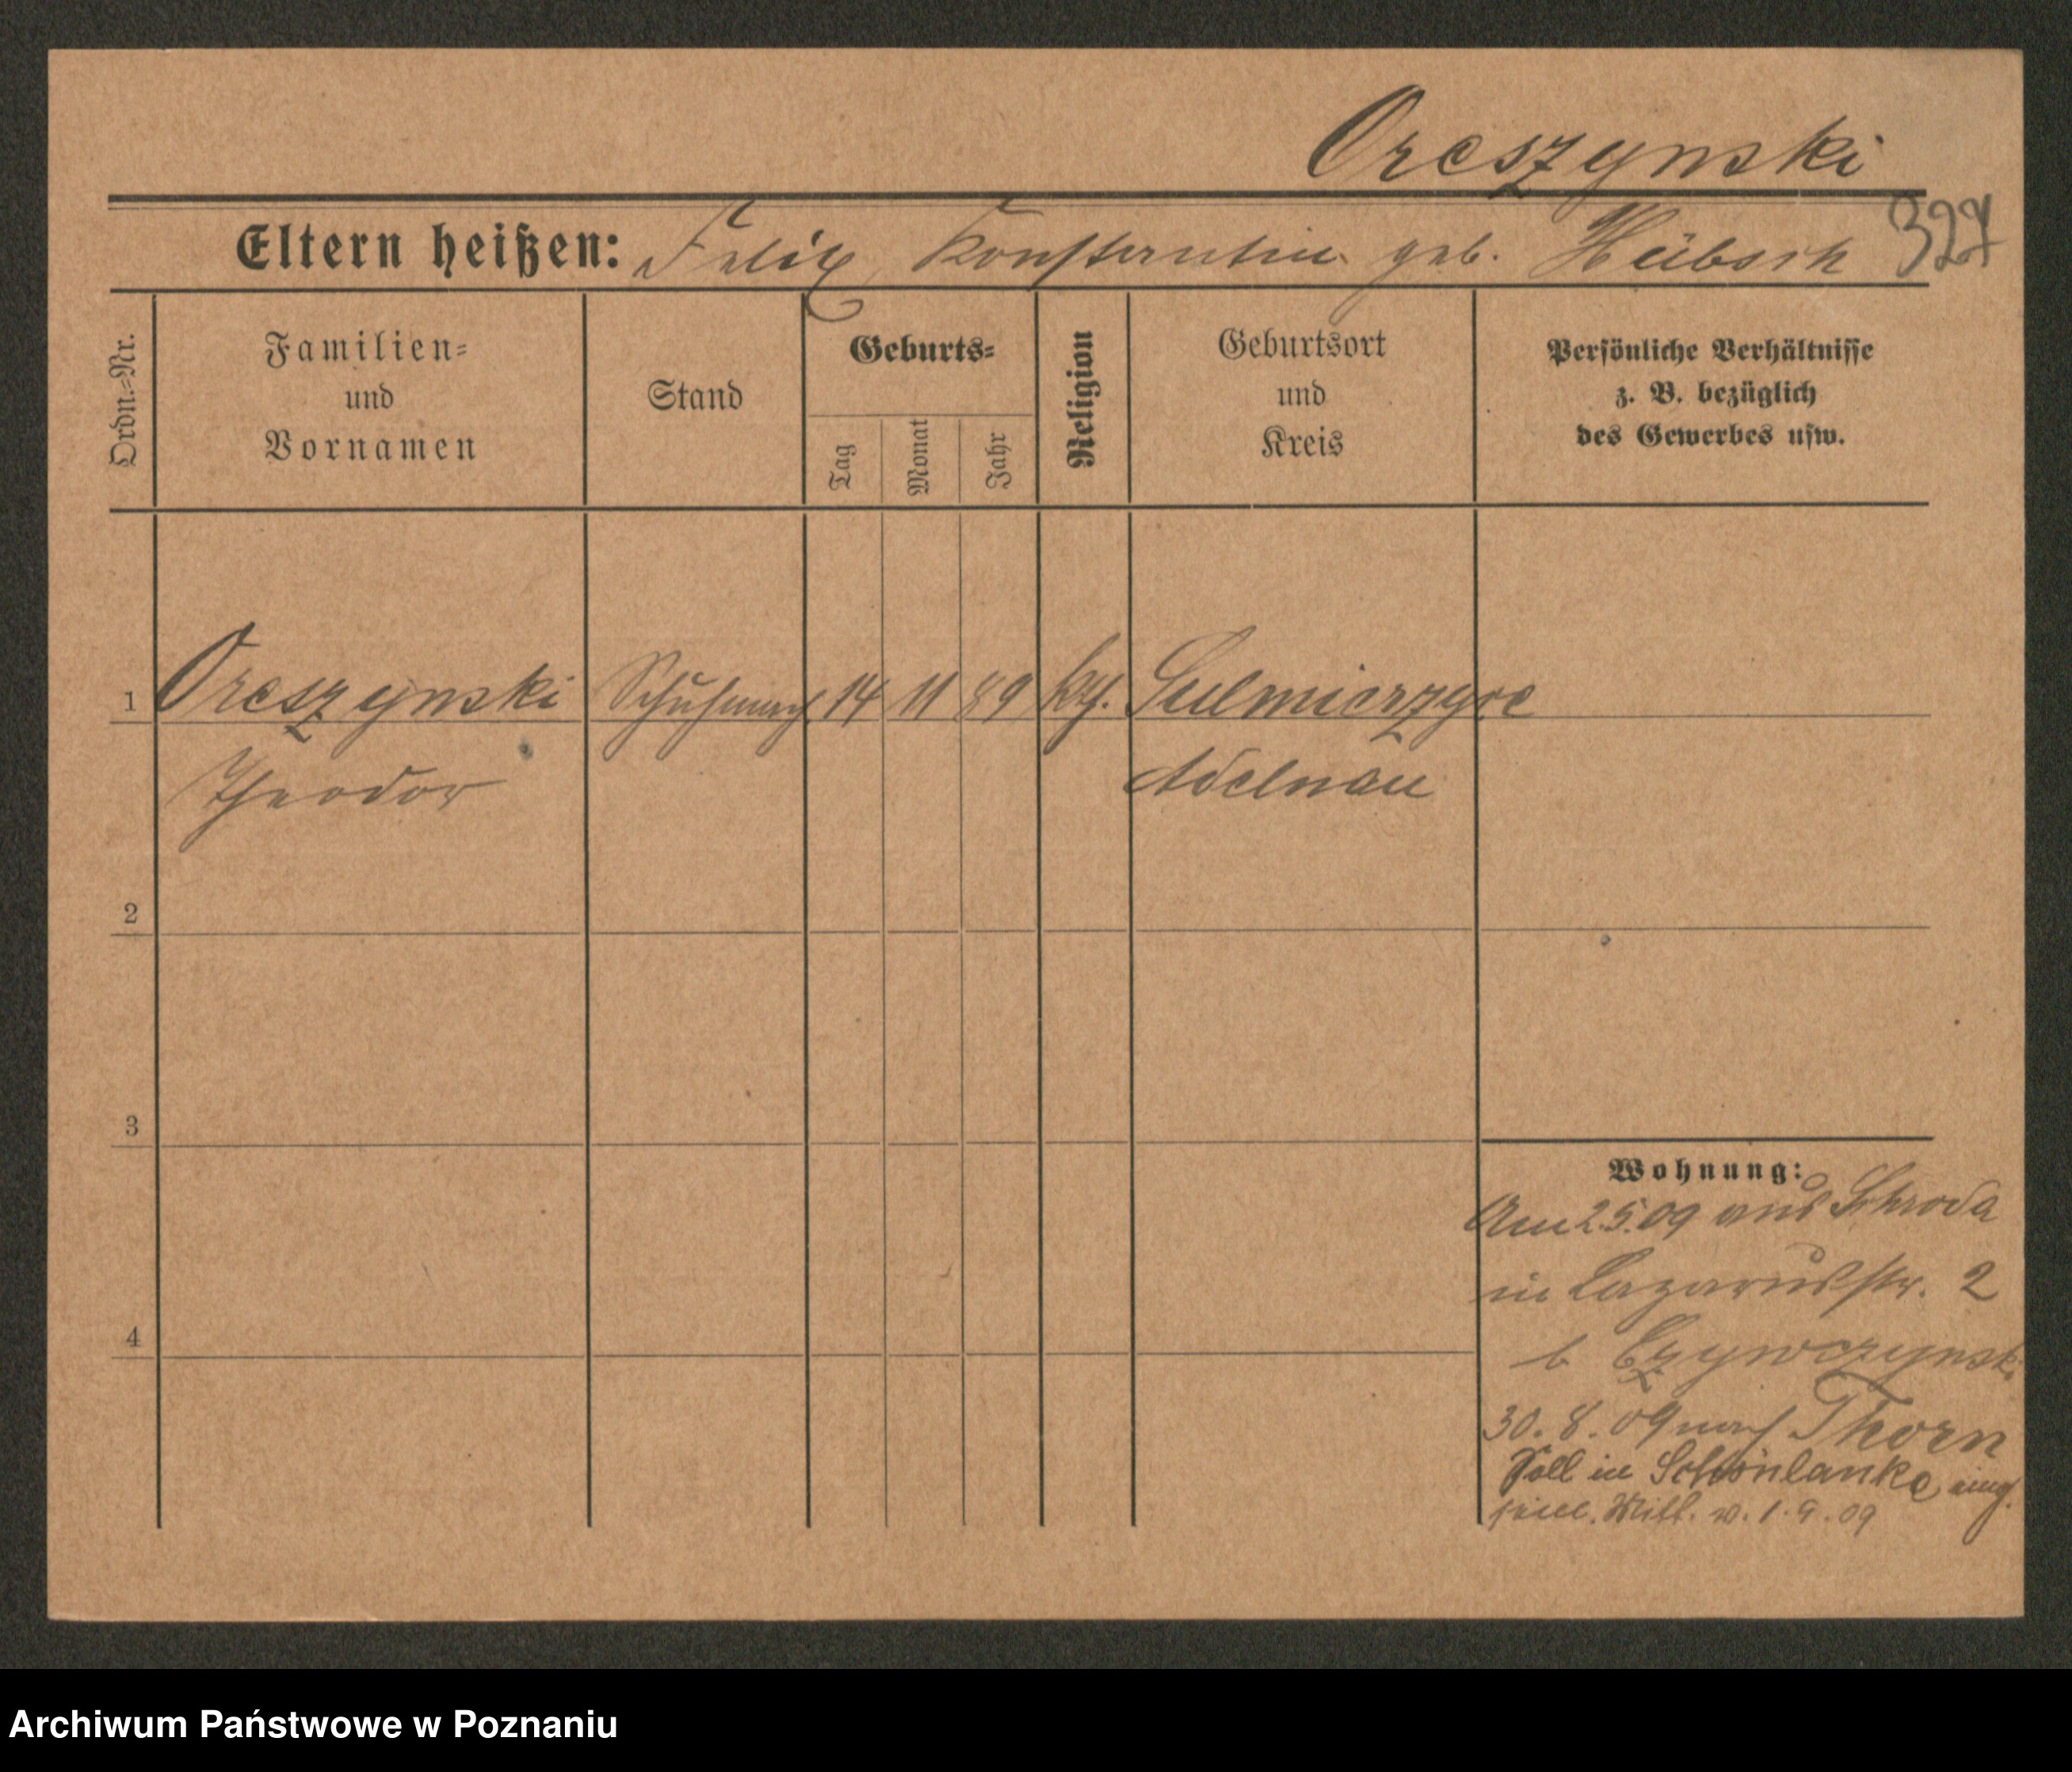 Orcszynski
Eltern heißen: Felix, Konstantin geb. Hübsch 327
Ordn.=Nr.
Familien=
und
Vornamen
Stand
Geburts=
Tag
Monat
Jahr
Religion
Geburtsort
und
Kreis
Persönliche Verhältnisse
z. B. bezüglich
des Gewerbes usw.
1 Orcszynski Schuhmach 14 11 89 kth. Sulmierzyce
Theodor Adelnau
2
3
4
Wohnung:
Am 2.5.09 aus Schroda
in Lazarusstr. 2
b
30.8.09 nach Thorn
Soll in Schönlanke
Mitt. v. 1.9.09
Archiwum Państwowe w Poznaniu